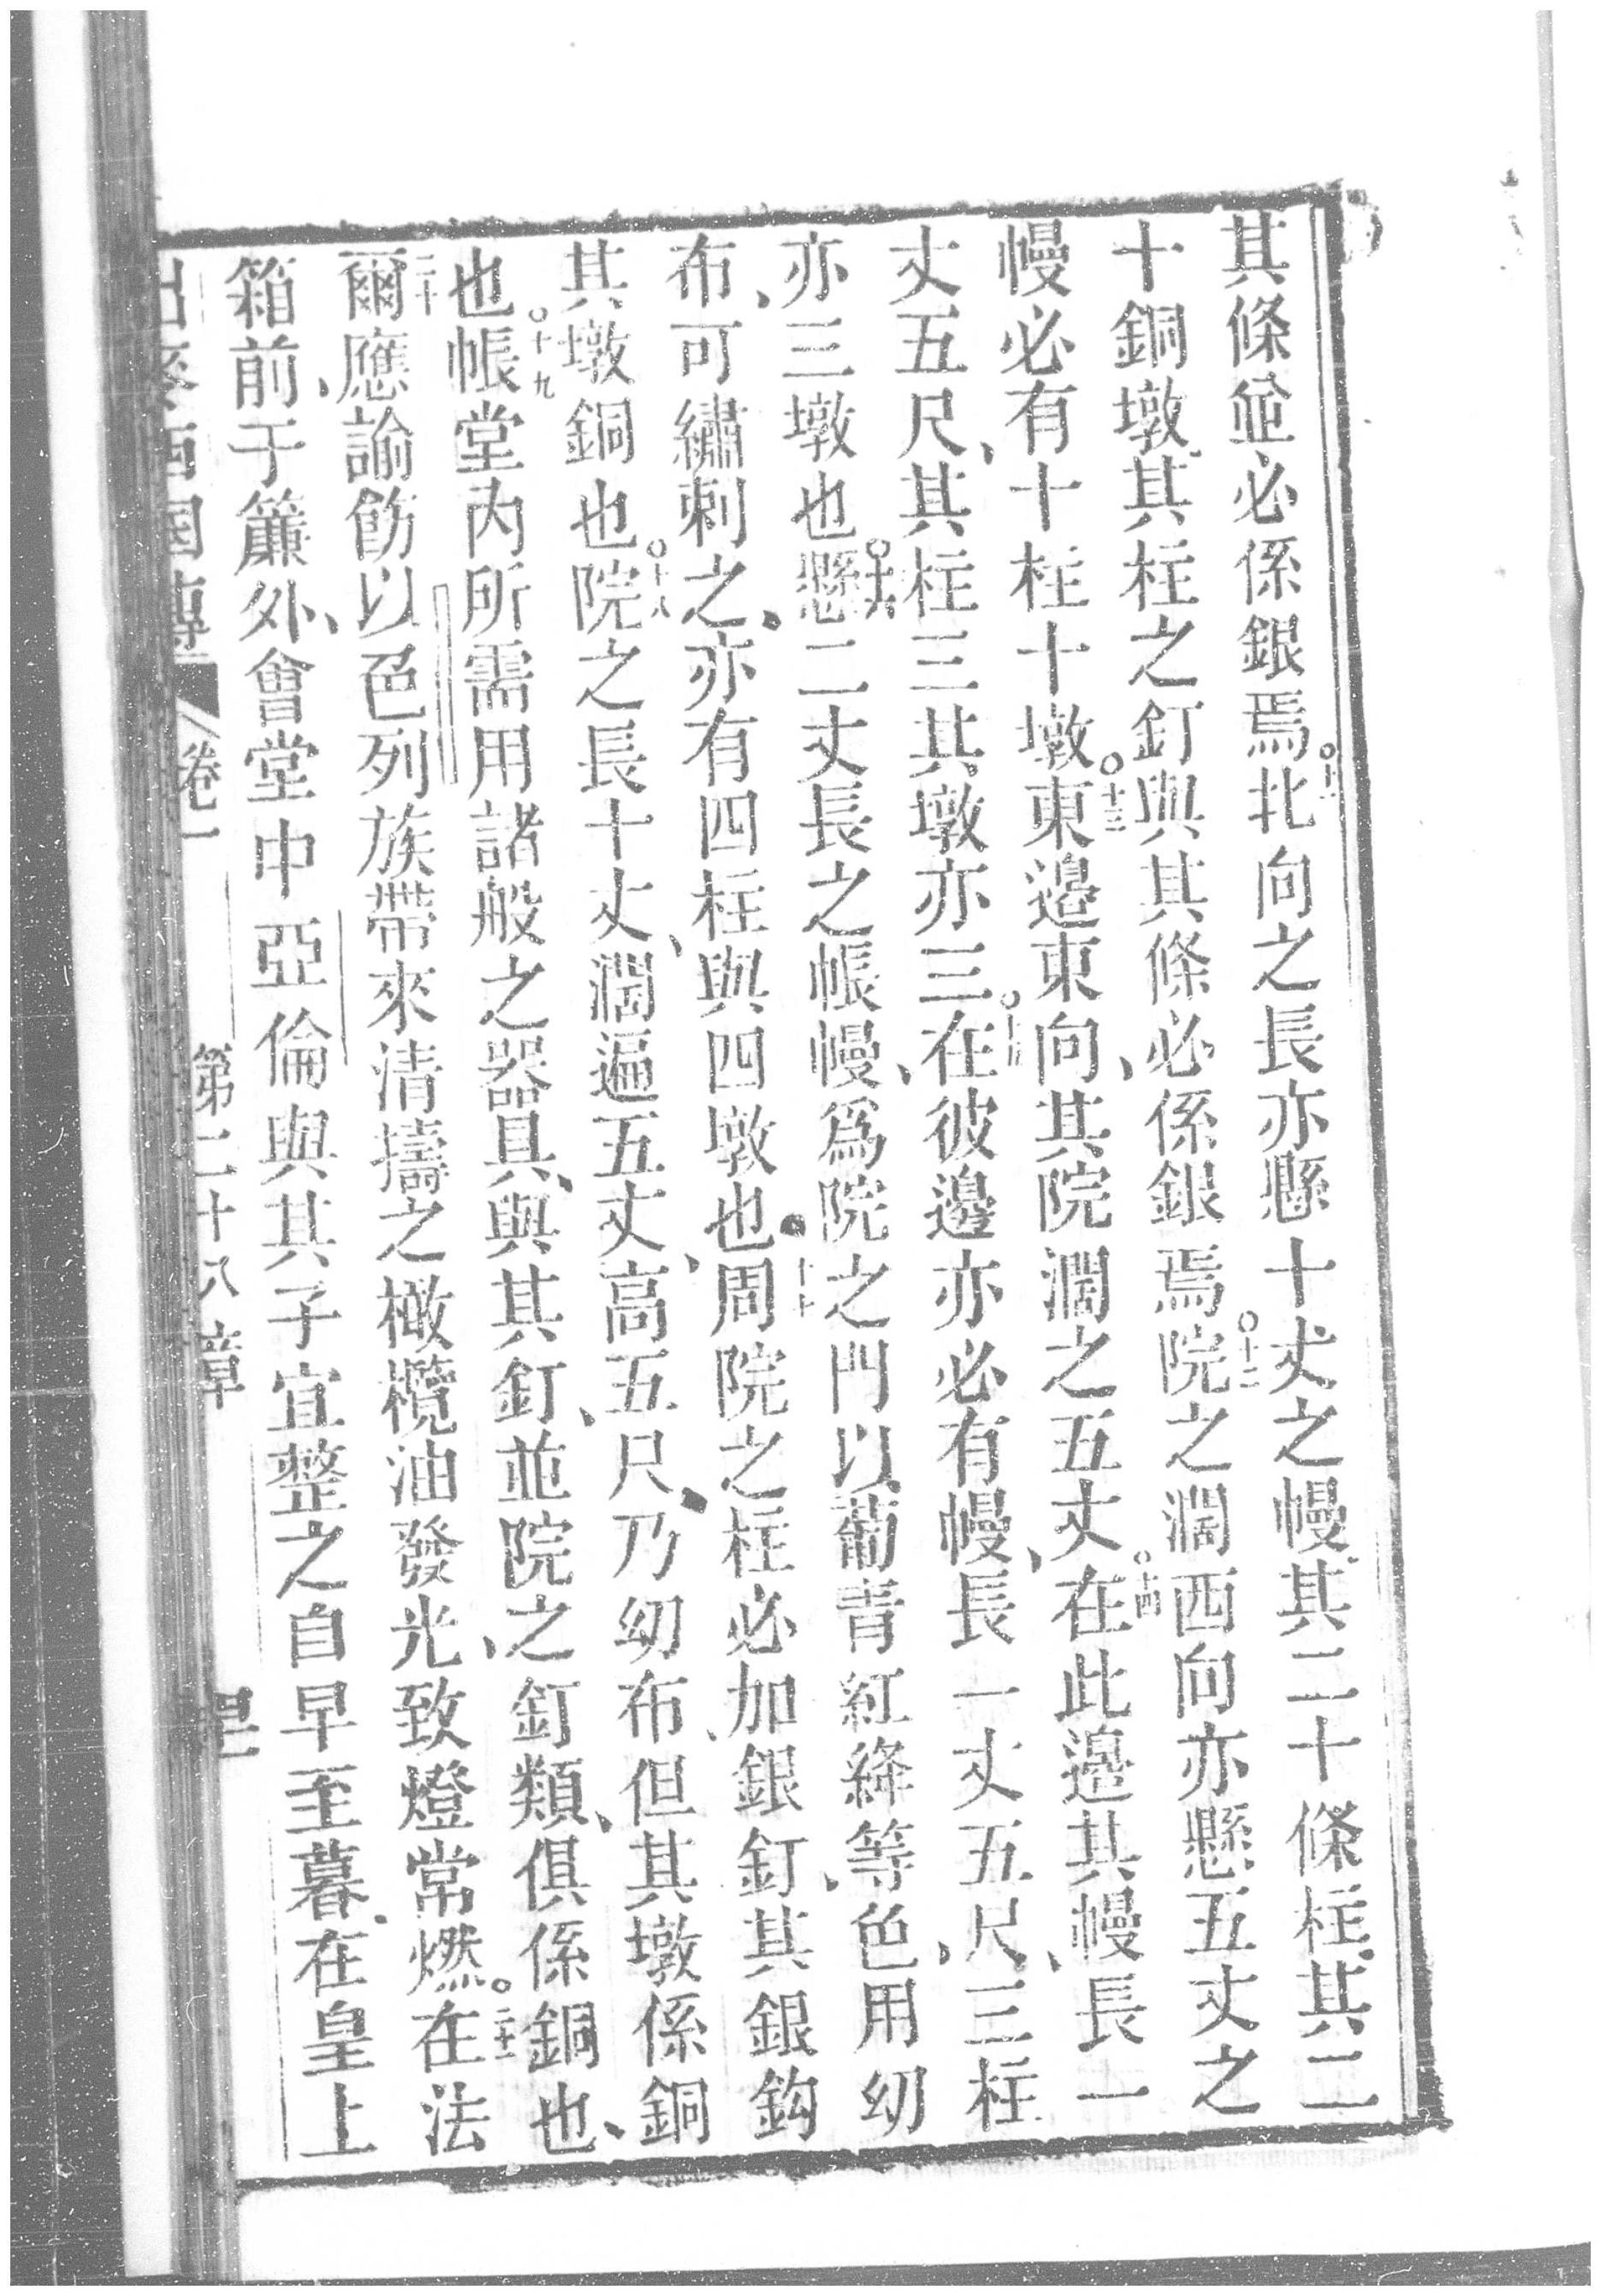 其條並必係銀焉○十一北向之長亦懸十丈之幔其二十條柱其二
十銅墩其柱之釘與其條必係銀焉○十二院之濶西向亦懸五丈之
幔必有十柱十墩○十三東邊東向其院濶之五丈○十四在此邊其幔長一
丈五尺其柱三其墩亦三○十五在彼邊亦必有幔長一丈五尺三柱
亦三墩也○十六懸二丈長之帳幔爲院之門以葡青紅絳等色用幼
布可繡刺之亦有四柱與四墩也○十七周院之柱必加銀釘其銀鈎
其墩銅也○十八院之長十丈濶遍五丈高五尺乃幼布但其墩係銅
也○十九帳堂內所需用諸般之器具與其釘並院之釘類俱係銅也
二十爾應諭飭以色列族帶來清擣之橄欖油發光致燈常燃○二十一在法
箱前于簾外會堂中亞倫與其子宜整之自早至暮在皇上
卷一 第二十八章